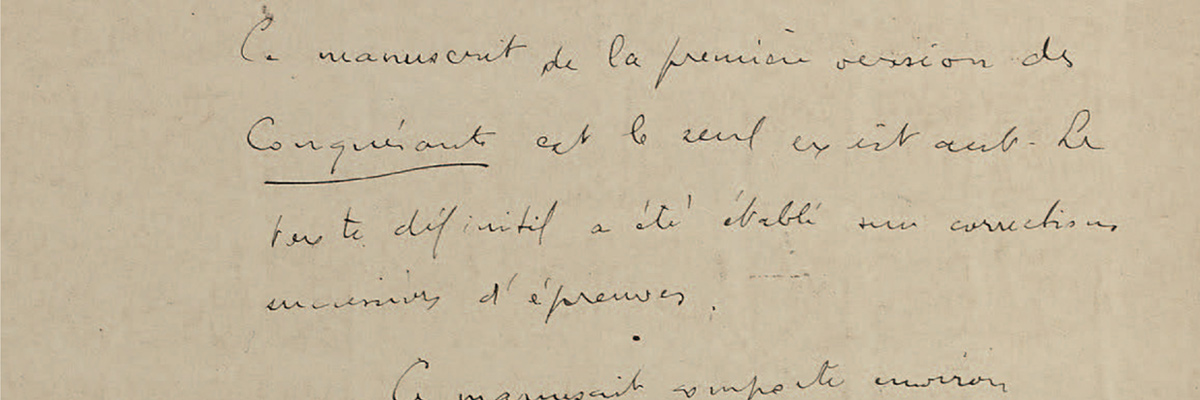 Ce manuscrit de la première version des
Conquérants est le seul existant. Le
texte définitif a été établi sur corrections
successives d'épreuves.
Ce manuscrit comporte environ